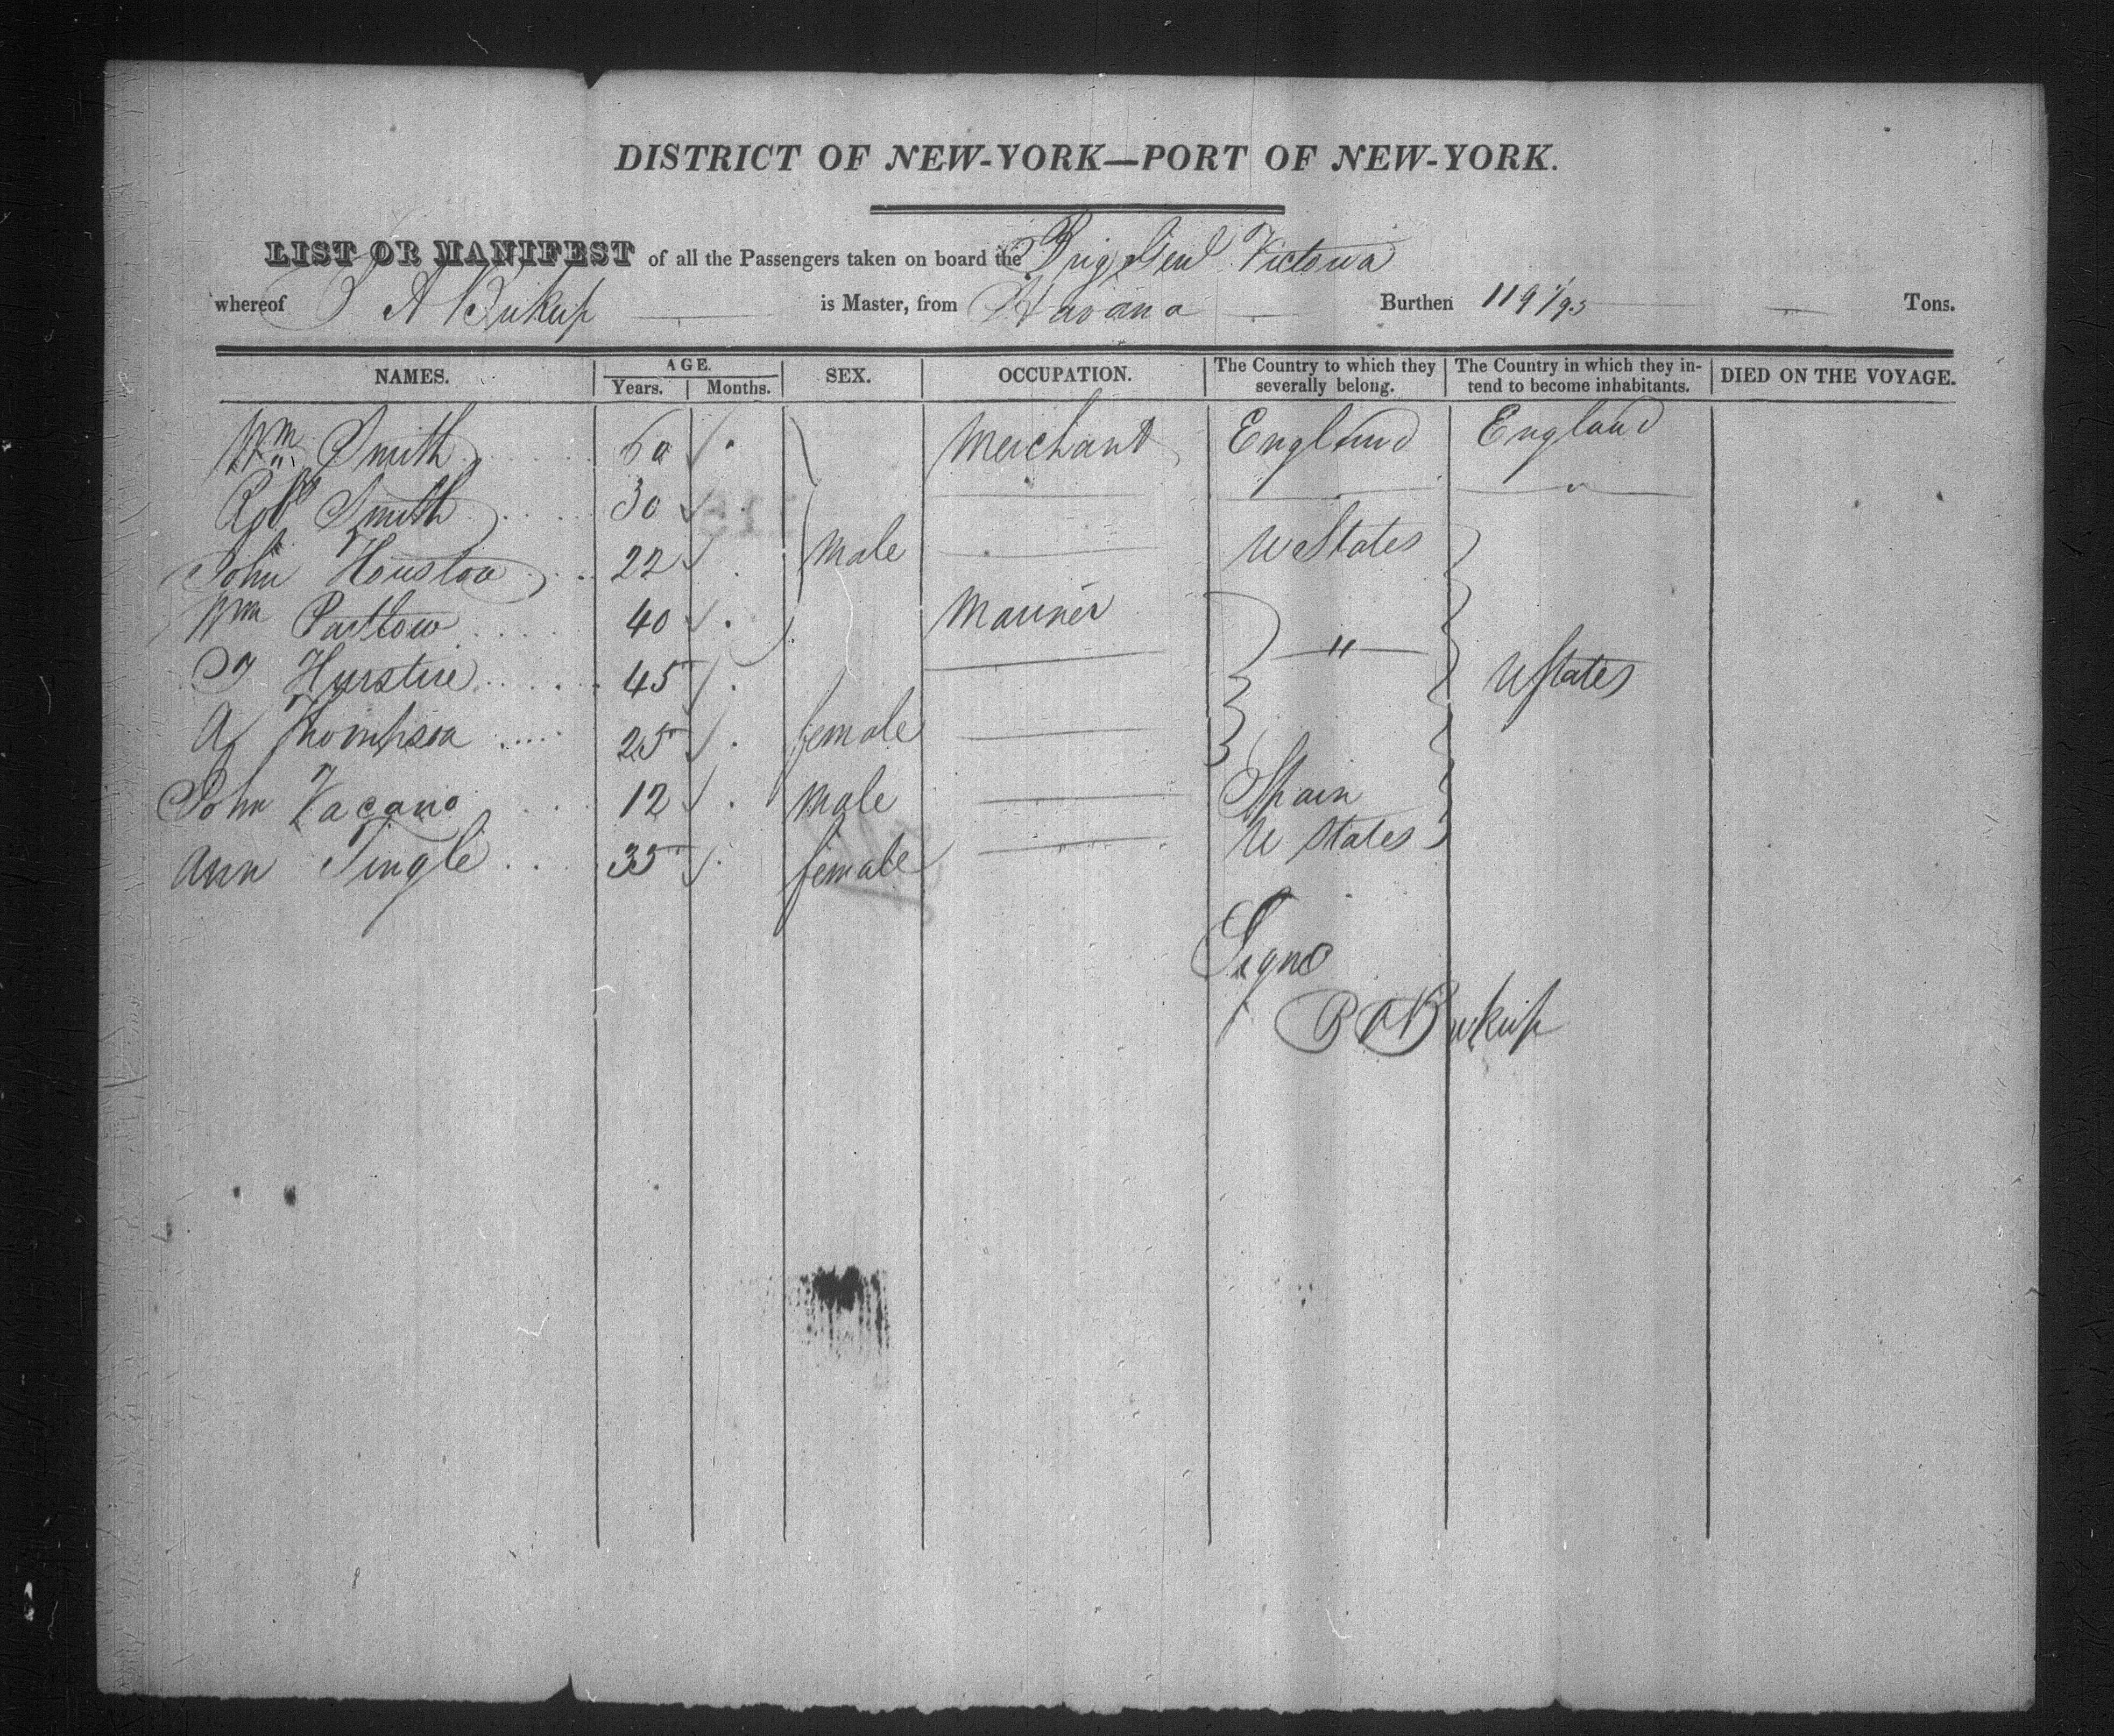 DISTRICT OF NEW-YORK—PORT OF NEW-YORK.
LIST OR MANIFEST of all the Passengers taken on board the Brig Genl Victoria
whereof A is Master, from Havana Burthen 119 1/95 Tons.
NAMES. AGE. Years. Months. SEX. OCCUPATION. The Country to which they severally belong. The Country in which they intend to become inhabitants. DIED ON THE VOYAGE.
Wm Smith 60 Merchant England England
Robt Smith 30 "
John Houston 22 male U States
Wm Partlow 40 Mariner
45 " U States
A Thompson 25 female
John 12 male Spain
Ann Tingle 35 female U States
Signd